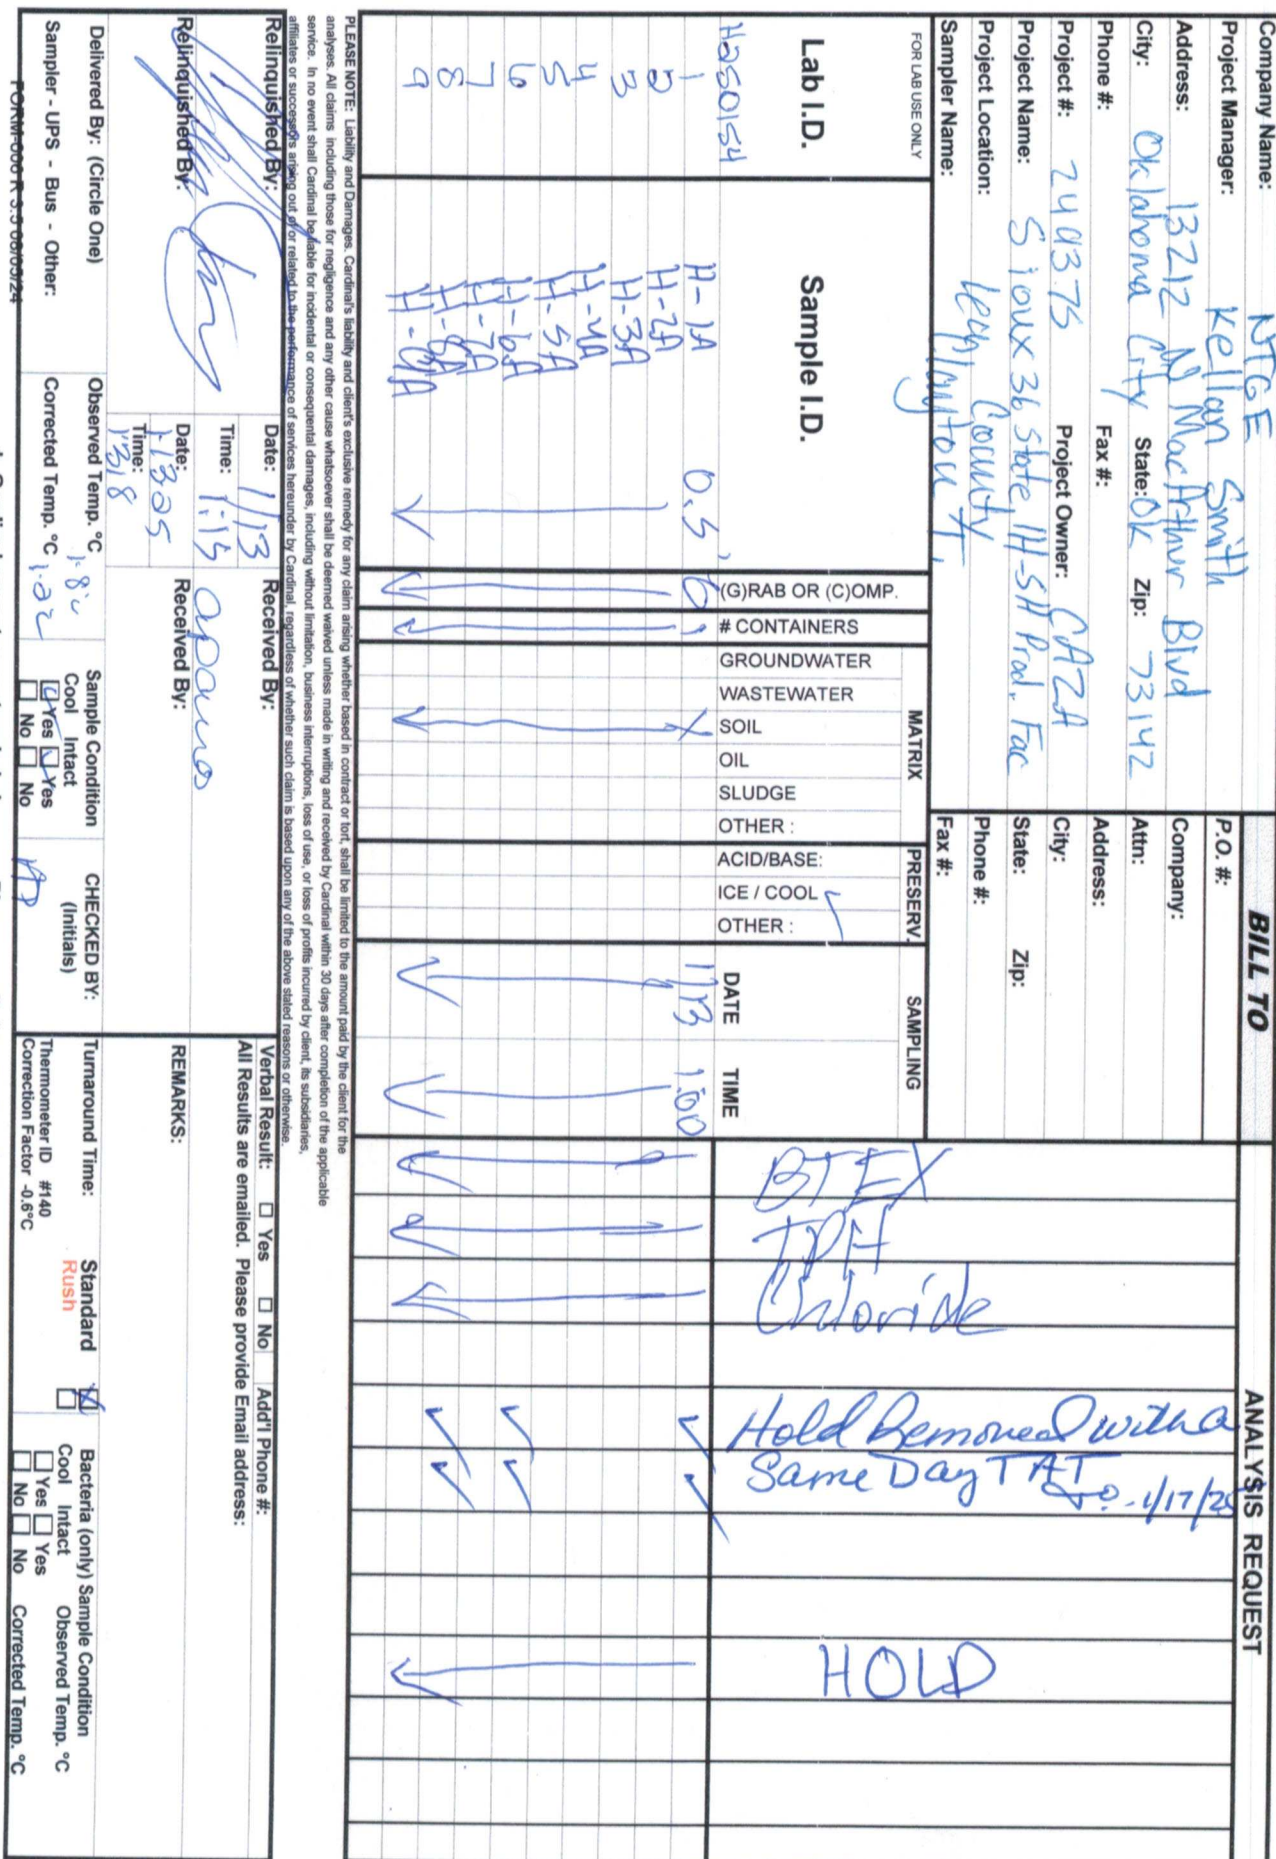 Company Name: NTGE
Project Manager: Kellan Smith
Address: 13212 N MacArthur Blvd
City: Oklahoma City State: OK Zip: 73142
Phone #: Fax #:
Project #: 249375 Project Owner: CAZA
Project Name: Sioux 36 State 1H-5H Prod. Fac
Project Location: Lea County
Sampler Name: Clayton T.
BILL TO
P.O. #:
Company:
Attn:
Address:
City:
State: Zip:
Phone #:
Fax #:
ANALYSIS REQUEST
BTEX
TPH
Chloride
Hold Removed with a
Same Day TAT
1/17/25
HOLD
FOR LAB USE ONLY
Lab I.D.
Sample I.D.
(G)RAB OR (C)OMP.
# CONTAINERS
MATRIX
GROUNDWATER
WASTEWATER
SOIL
OIL
SLUDGE
OTHER :
PRESERV.
ACID/BASE:
ICE / COOL ✓
OTHER :
SAMPLING
DATE
TIME
H250154
1 H-1A 0.5' G 1 X 1/13 1:00 ✓ ✓
2 H-2A
3 H-3A
4 H-4A
5 H-5A
6 H-6A ✓ ✓
7 H-7A
8 H-8A ✓ ✓
9 H-9A
PLEASE NOTE: Liability and Damages. Cardinal's liability and client's exclusive remedy for any claim arising whether based in contract or tort, shall be limited to the amount paid by the client for the
analyses. All claims including those for negligence and any other cause whatsoever shall be deemed waived unless made in writing and received by Cardinal within 30 days after completion of the applicable
service. In no event shall Cardinal be liable for incidental or consequental damages, including without limitation, business interruptions, loss of use, or loss of profits incurred by client, its subsidiaries,
affiliates or successors arising out of or related to the performance of services hereunder by Cardinal, regardless of whether such claim is based upon any of the above stated reasons or otherwise.
Relinquished By:
Date: 1/13
Time: 1:15
Received By:
Relinquished By:
Date: 1-13-25
Time: 1318
Received By:
Verbal Result: □ Yes □ No Add'l Phone #:
All Results are emailed. Please provide Email address:
REMARKS:
Delivered By: (Circle One)
Sampler - UPS - Bus - Other:
Observed Temp. °C 1.8c
Corrected Temp. °C 1.2c
Sample Condition
Cool Intact
Yes Yes
No No
CHECKED BY:
(Initials)
Turnaround Time: Standard
Rush
Thermometer ID #140
Correction Factor -0.6°C
Bacteria (only) Sample Condition
Cool Intact Observed Temp. °C
□ Yes □ Yes
□ No □ No Corrected Temp. °C
FORM-006 R 3.5 08/05/24